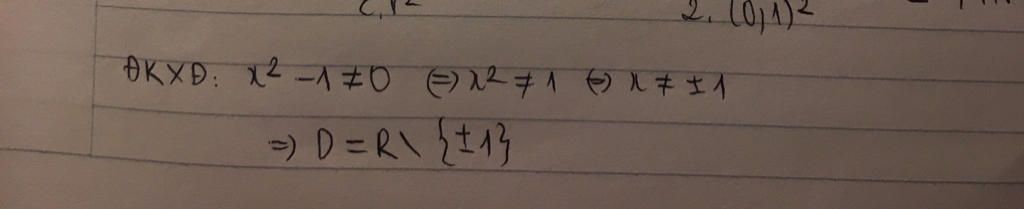 2. (0,1)²
ĐKXD: x² - 1 ≠ 0 ⇔ x² ≠ 1 ⇔ x ≠ ± 1
⇒ D = R \ {±1}